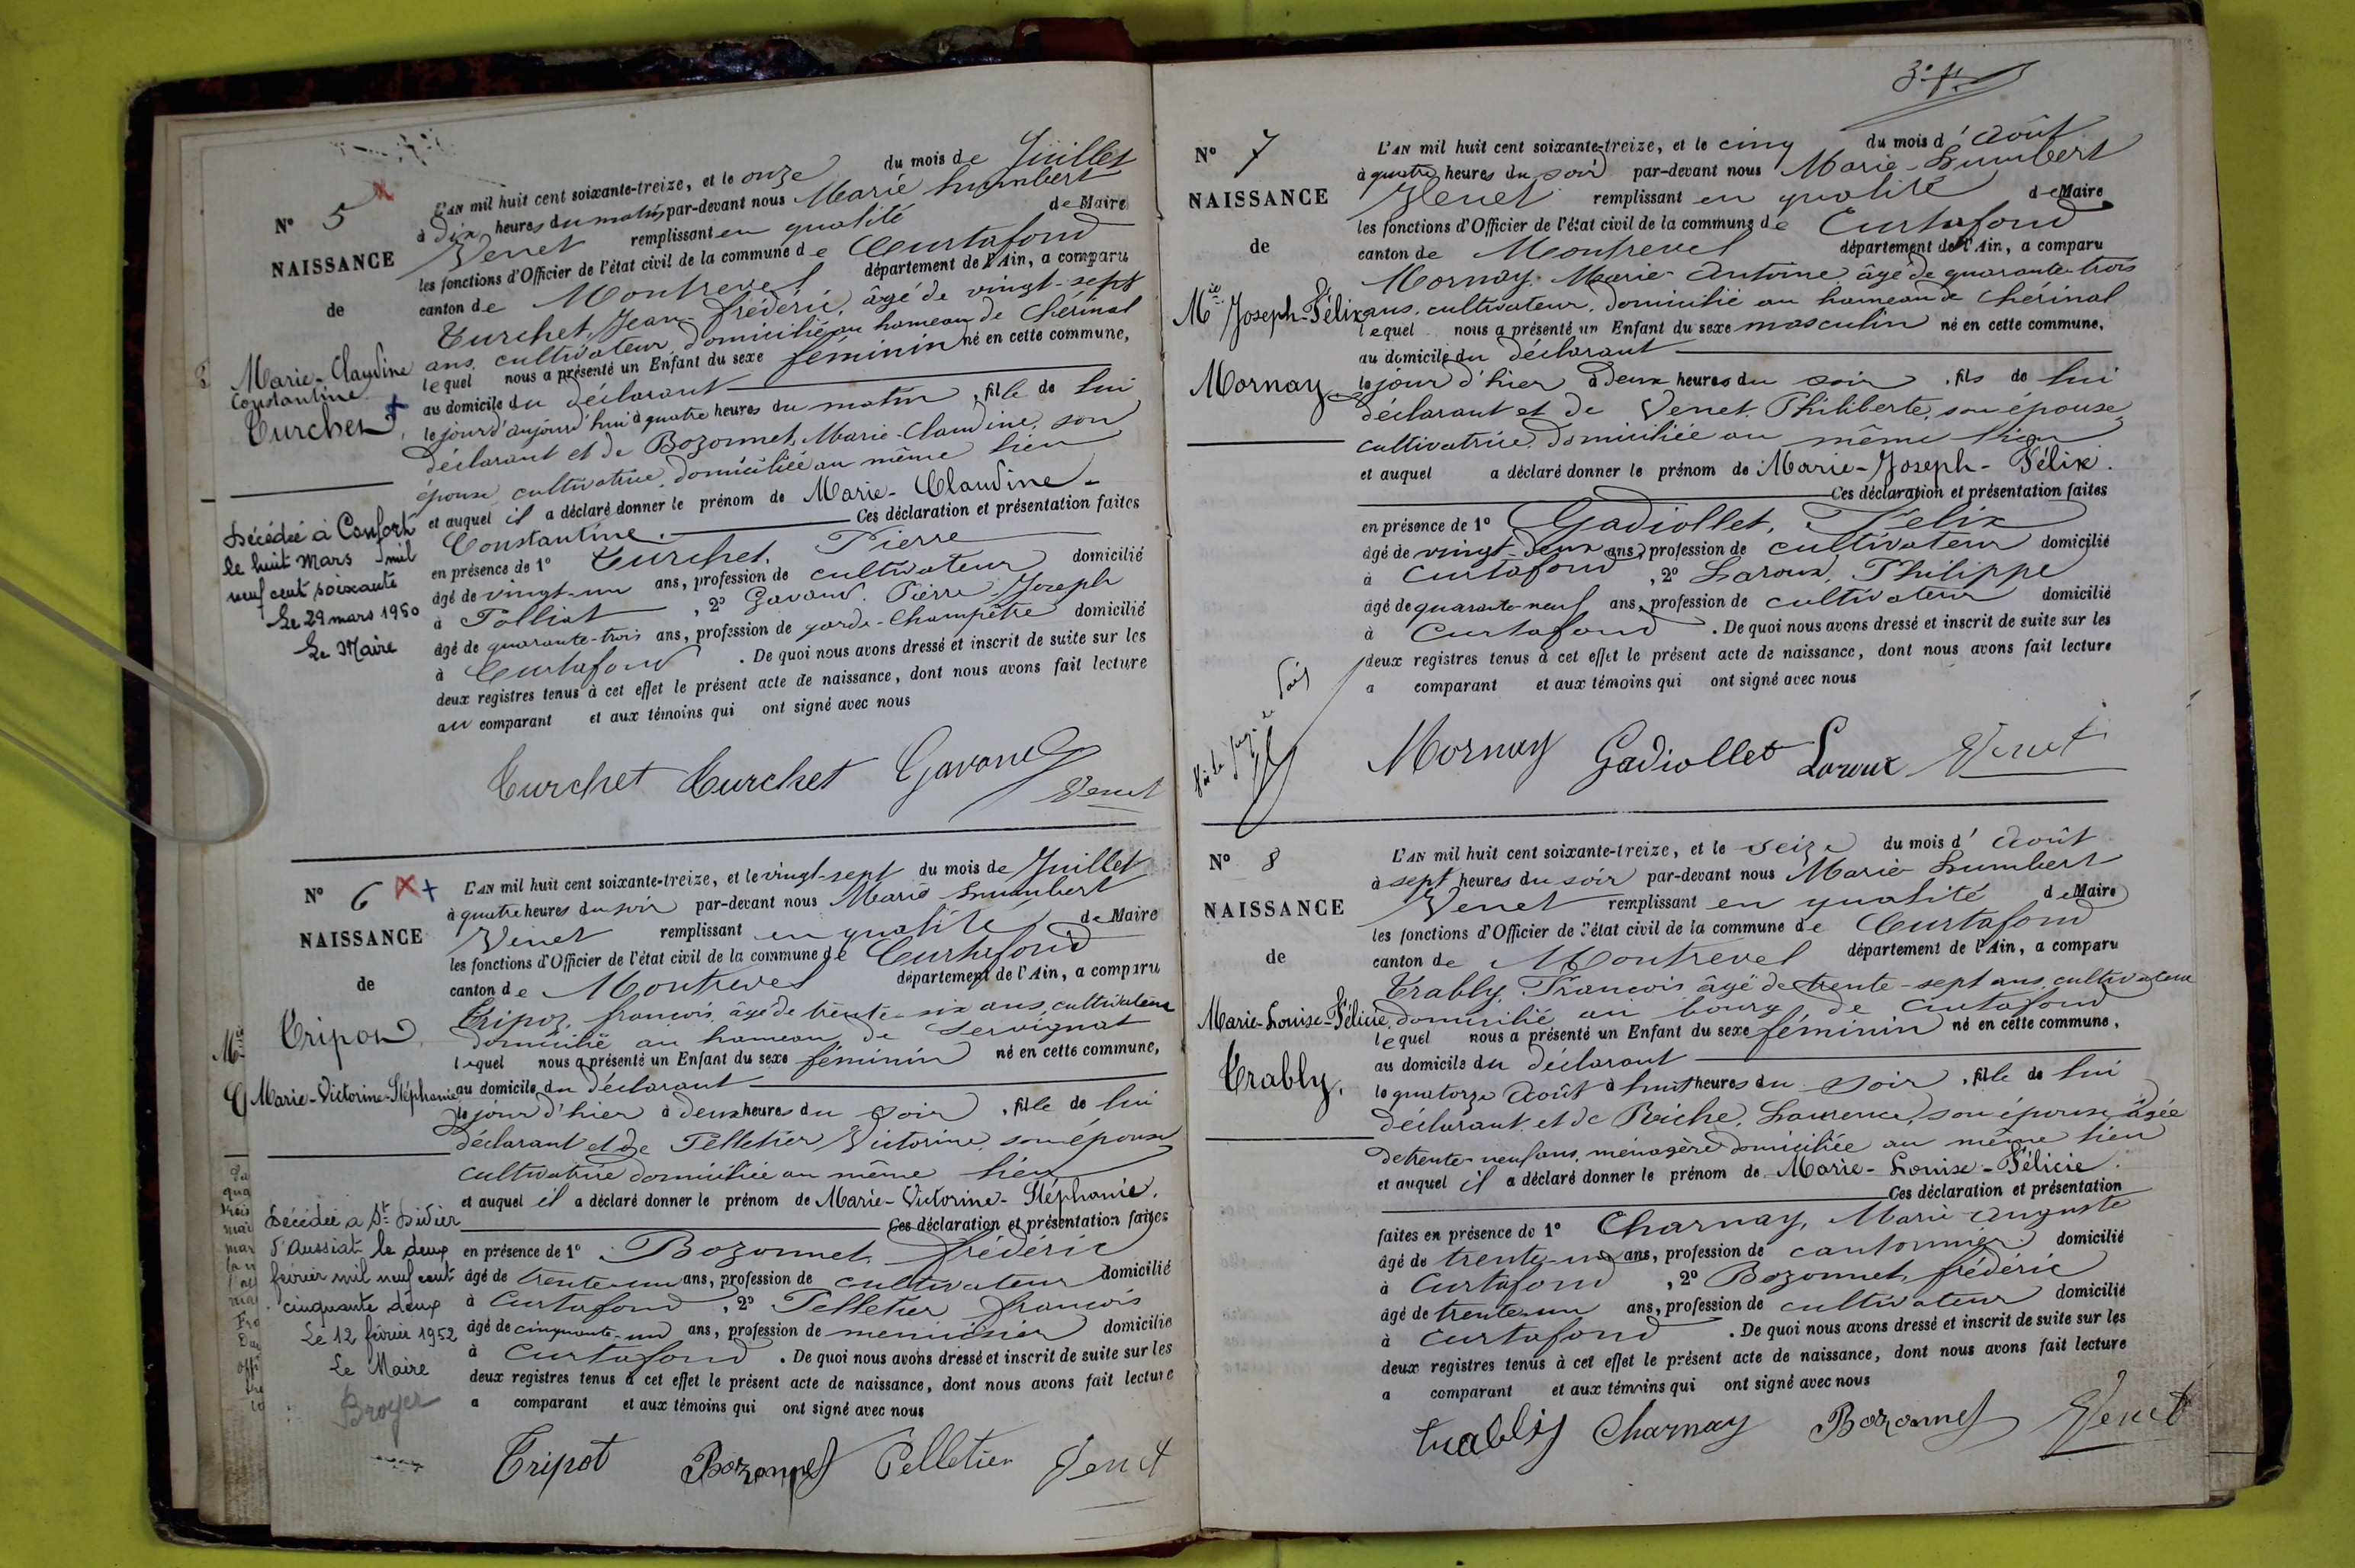 N° 5
NAISSANCE
de
Marie-Claudine
Constantine
Turchet
Décédée à Confort
le huit mars mil
neuf cent soixante
Le 29 mars 1960
Le Maire
L'AN mil huit cent soixante-treize, et le onze du mois de Juillet
à dix heures du matin par-devant nous Marie humbert
Venet remplissant en qualité de Maire
les fonctions d'Officier de l'état civil de la commune de Curtafond
canton de Montrevel département de l'Ain, a comparu
Turchet, Jean-frédéric, âgé de vingt-sept
ans, cultivateur, domicilié au hameau de Chérinal
lequel nous a présenté un Enfant du sexe féminin né en cette commune,
au domicile du déclarant
le jour d'aujourd'hui à quatre heures du matin, fille de lui
déclarant et de Bozonnet, Marie-Claudine, son
épouse, cultivatrice, domiciliée au même lieu
et auquel il a déclaré donner le prénom de Marie-Claudine-
Constantine. Ces déclaration et présentation faites
en présence de 1° Turchet, Pierre
âgé de vingt-un ans, profession de cultivateur domicilié
à Polliat, 2° Gavand, Pierre Joseph
âgé de quarante-trois ans, profession de garde-Champêtre domicilié
à Curtafond. De quoi nous avons dressé et inscrit de suite sur les
deux registres tenus à cet effet le présent acte de naissance, dont nous avons fait lecture
au comparant et aux témoins qui ont signé avec nous
Turchet Turchet Gavand
Venet
N° 6
NAISSANCE
de
Tripoz
Marie-Victorine-Stéphanie
Décédée à St Didier
d'Aussiat le deux
février mil neuf cent
cinquante deux
Le 12 février 1952
Le Maire
Broyer
L'AN mil huit cent soixante-treize, et le vingt-sept du mois de Juillet
à quatre heures du soir par-devant nous Marie humbert
Venet remplissant en qualité de Maire
les fonctions d'Officier de l'état civil de la commune de Curtafond
canton de Montrevel département de l'Ain, a comparu
Tripoz, françois, âgé de trente-six ans, cultivateur
domicilié au hameau de Servignat
lequel nous a présenté un Enfant du sexe féminin né en cette commune,
au domicile du déclarant
le jour d'hier à deux heures du soir, fille de lui
déclarant et de Pelletier Victorine, son épouse
cultivatrice domiciliée au même lieu
et auquel il a déclaré donner le prénom de Marie-Victorine-Stéphanie.
Ces déclaration et présentation faites
en présence de 1° Bozonnet, frédéric
âgé de trente-un ans, profession de cultivateur domicilié
à Curtafond, 2° Pelletier françois
âgé de cinquante-un ans, profession de menuisier domicilié
à Curtafond. De quoi nous avons dressé et inscrit de suite sur les
deux registres tenus à cet effet le présent acte de naissance, dont nous avons fait lecture
a comparant et aux témoins qui ont signé avec nous
Tripot Bozonnet Pelletier Venet
N° 7
NAISSANCE
de
Mie Joseph-Félix
Mornay
L'AN mil huit cent soixante-treize, et le cinq du mois d'Août
à quatre heures du soir par-devant nous Marie-humbert
Venet remplissant en qualité de Maire
les fonctions d'Officier de l'état civil de la commune de Curtafond
canton de Montrevel département de l'Ain, a comparu
Mornay, Marie-Antoine, âgé de quarante-trois
ans, cultivateur, domicilié au hameau de Chérinal
lequel nous a présenté un Enfant du sexe masculin né en cette commune,
au domicile du déclarant
le jour d'hier à deux heures du soir, fils de lui
déclarant et de Venet, Philiberte, son épouse,
cultivatrice, domiciliée au même lieu
et auquel a déclaré donner le prénom de Marie-Joseph-Félix.
Ces déclaration et présentation faites
en présence de 1° Gadiollet, Félix
âgé de vingt-deux ans, profession de cultivateur domicilié
à Curtafond, 2° Laroux, Philippe
âgé de quarante-neuf ans, profession de cultivateur domicilié
à Curtafond. De quoi nous avons dressé et inscrit de suite sur les
deux registres tenus à cet effet le présent acte de naissance, dont nous avons fait lecture
a comparant et aux témoins qui ont signé avec nous
Mornay Gadiollet Laroux Venet
N° 8
NAISSANCE
de
Marie-Louise-Félicie
Trably.
L'AN mil huit cent soixante-treize, et le seize du mois d'Août
à sept heures du soir par-devant nous Marie humbert
Venet remplissant en qualité de Maire
les fonctions d'Officier de l'état civil de la commune de Curtafond
canton de Montrevel département de l'Ain, a comparu
Trably, François âgé de trente-sept ans, cultivateur
domicilié au bourg de Curtafond
lequel nous a présenté un Enfant du sexe féminin né en cette commune,
au domicile du déclarant
le quatorze Août à huit heures du soir, fille de lui
déclarant et de Riche, Laurence, son épouse, âgée
de trente-neuf ans, ménagère domiciliée au même lieu
et auquel il a déclaré donner le prénom de Marie-Louise-Félicie.
Ces déclaration et présentation
faites en présence de 1° Charnay, Marie Auguste
âgé de trente-un ans, profession de cantonnier domicilié
à Curtafond, 2° Bozonnet, frédéric
âgé de trente-un ans, profession de cultivateur domicilié
à Curtafond. De quoi nous avons dressé et inscrit de suite sur les
deux registres tenus à cet effet le présent acte de naissance, dont nous avons fait lecture
a comparant et aux témoins qui ont signé avec nous
trably Charnay Bozonnet Venet